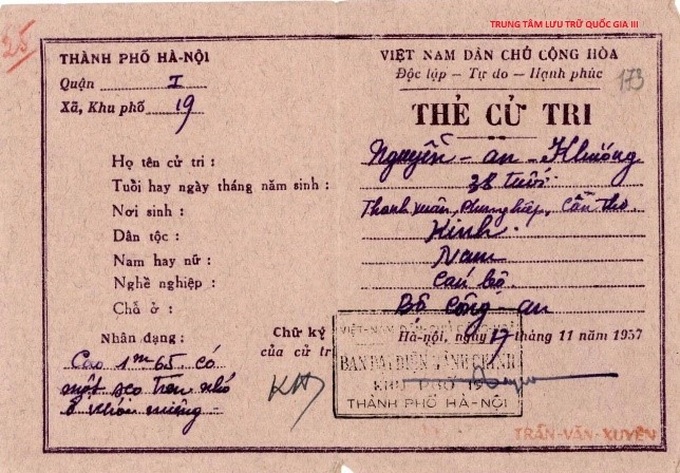 TRUNG TÂM LƯU TRỮ QUỐC GIA III
25
173
THÀNH PHỐ HÀ-NỘI
Quận I
Xã, Khu phố 19
VIỆT NAM DÂN CHỦ CỘNG HÒA
Độc lập – Tự do – Hạnh phúc
THẺ CỬ TRI
Họ tên cử tri : Nguyễn - an - Khương
Tuổi hay ngày tháng năm sinh : 38 tuổi.
Nơi sinh : Thanh xuân, Phụng hiệp, Cần thơ
Dân tộc : Kinh.
Nam hay nữ : Nam
Nghề nghiệp : Cán bộ.
Chỗ ở : Bộ Công - an
Nhân dạng :
Cao 1m65 có
một sẹo trên
ở khóe miệng -
Chữ ký
của cử tri
Hà-nội, ngày 17 tháng 11 năm 1957
VIỆT-NAM DÂN-CHỦ CỘNG HÒA
BAN ĐẠI DIỆN HÀNH CHÍNH
KHU PHỐ
THÀNH PHỐ HÀ-NỘI
TRẦN-VĂN-XUYÊN